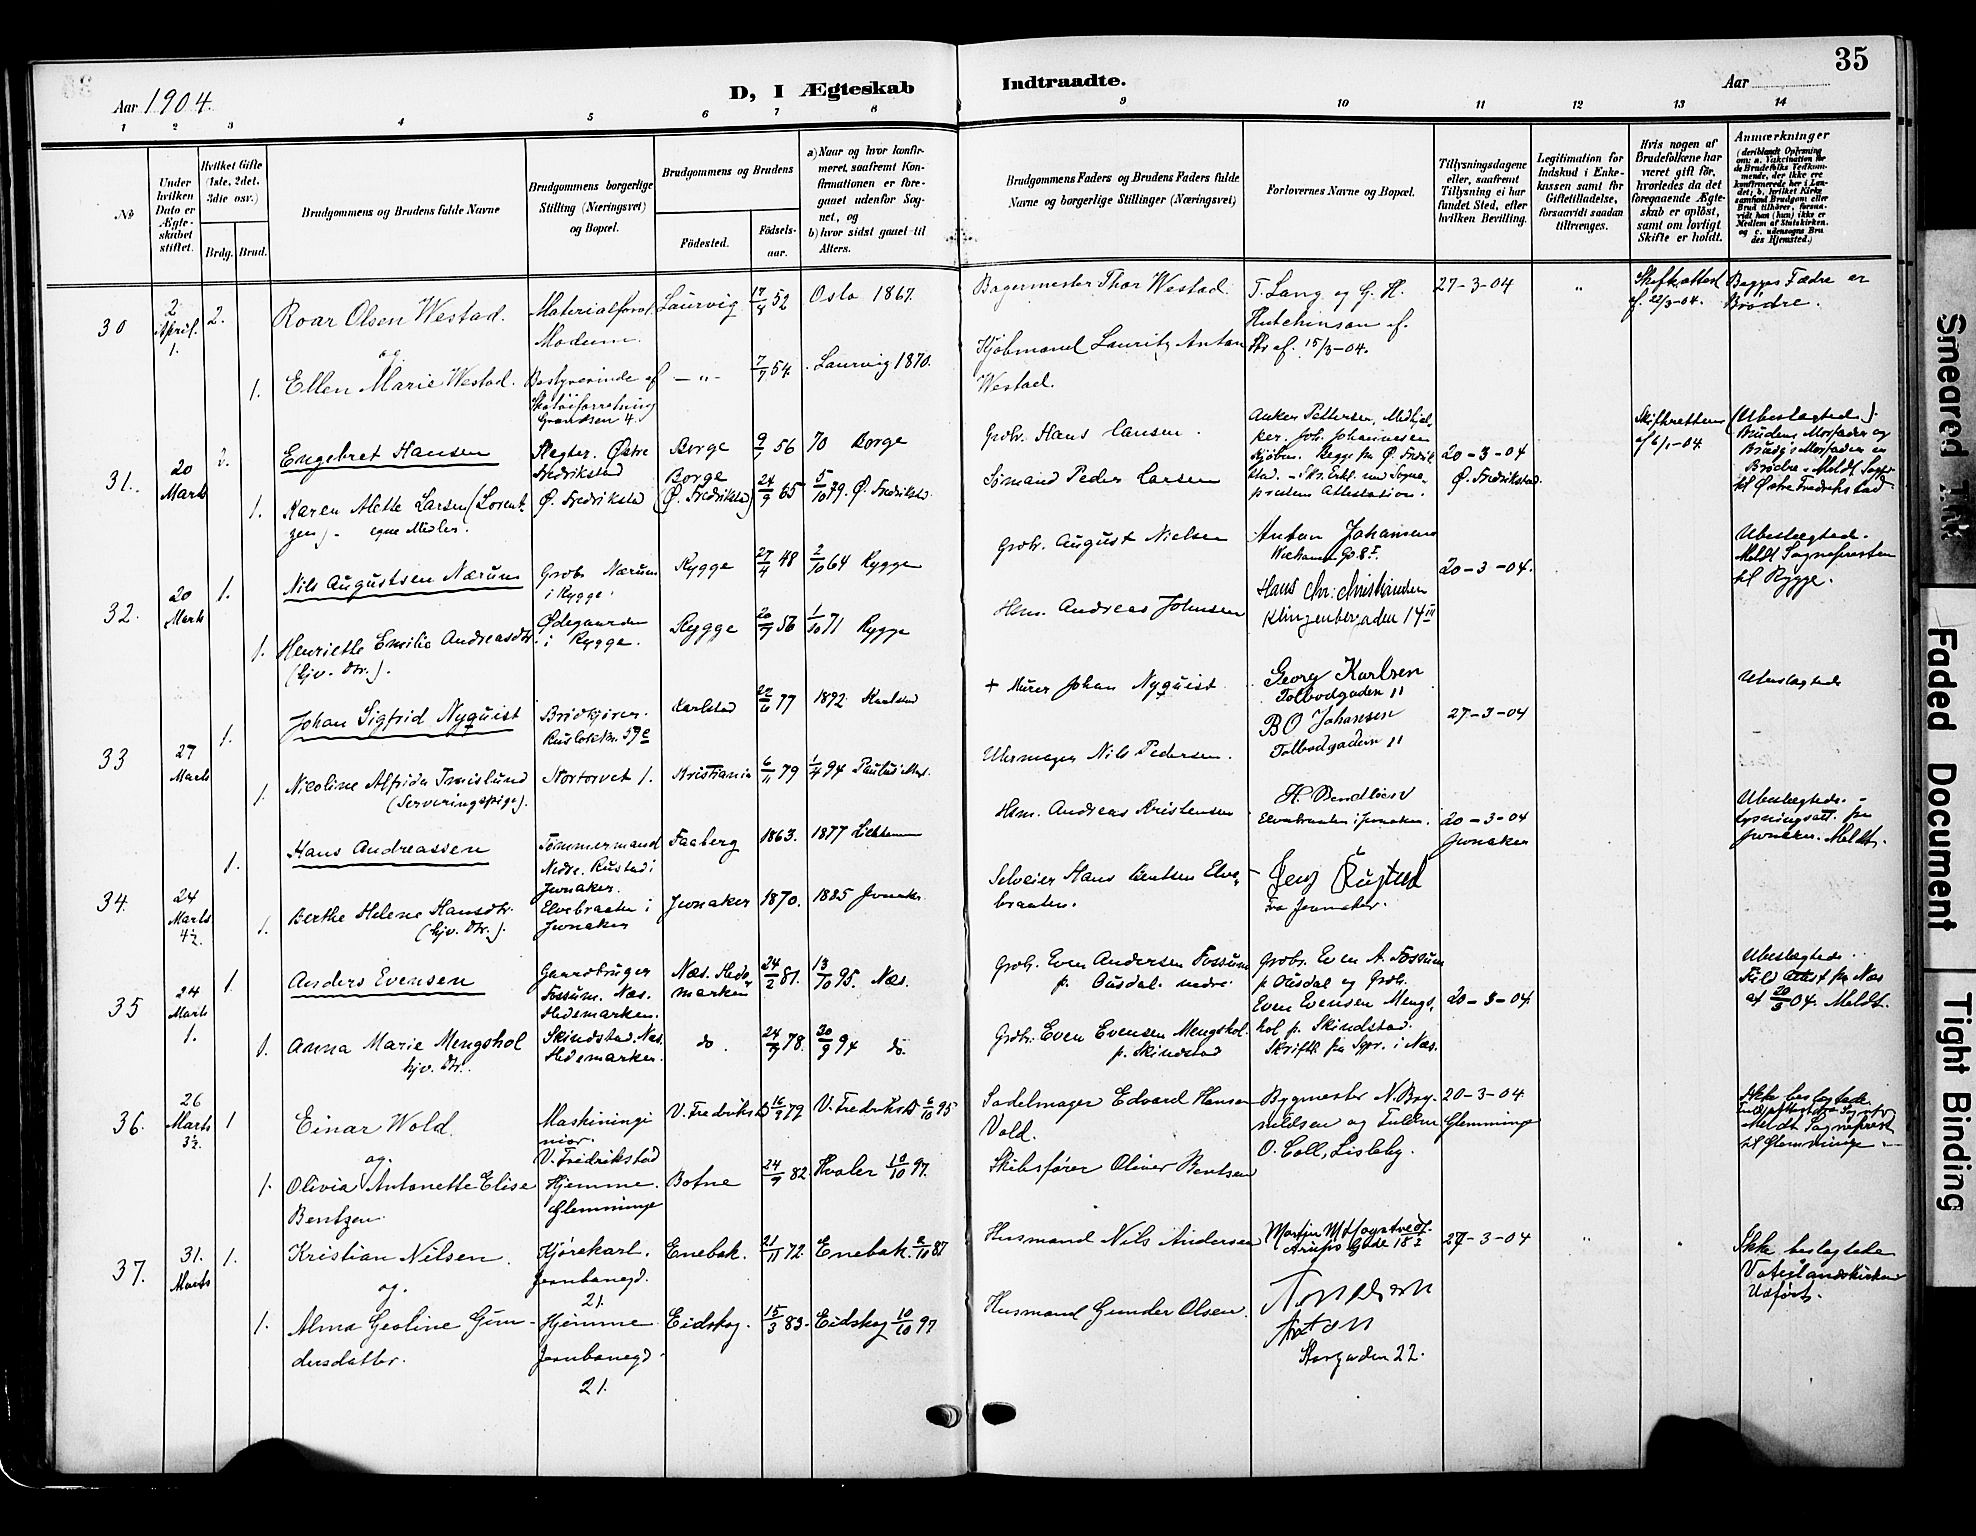 35
Aar 1904.
D, I Ægteskab Indtraadte.
Aar
1 2 3 4 5 6 7 8 9 10 11 12 13 14
No
Under hvilken Dato er Ægteskabet stiftet.
Hvilket Gifte (1ste, 2det, 3die osv.)
Brdg. Brud.
Brudgommens og Brudens fulde Navne
Brudgommens borgerlige Stilling (Næringsvei) og Bopæl.
Brudgommens og Brudens
Födested. Födselsaar.
a) Naar og hvor konfirmeret, saafremt Konfirmationen er foregaaet udenfor Sognet, og
b) hvor sidst gaaet til Alters.
Brudgommens Faders og Brudens Faders fulde Navne og borgerlige Stillinger (Næringsvei)
Forlovernes Navne og Bopæl.
Tillysningsdagene eller, saafremt Tillysning ei har fundet Sted, efter hvilken Bevilling.
Legitimation for Indskud i Enkekassen samt for Giftetilladelse, forsaavidt saadan tiltrænges.
Hvis nogen af Brudefolkene har været gift för, hvorledes da det foregaaende Ægteskab er oplöst, samt om lovligt Skifte er holdt.
Anmærkninger
30
2 April. 1.
2.
Roar Olsen Westad.
og
Materialforv.
Modum.
Laurvig
17/4 52
Oslo 1867.
Bagermester Thor Westad.
T. Lang og G. H. Hutchinson
15/3-04.
27-3-04
Skifteattest
af 22/3-04.
Begges Fædre er
Brødre.
1.
Ellen Marie Westad.
Bestyrerinde af
Skotöiforretning
Grændsen 4.
-"-
7/7 54.
Laurvig 1870.
Kjöbmand Lauritz Anton
Westad.
31.
20
Marts
2.
Engebret Hansen
Slagter. Østre
Fredrikstad
Borge
9/7 56
70 Borge
Grdbr. Hans Hansen.
Anker Pettersen, Joh. Johannesen
20-3-04
Ø. Fredrikstad
Skifteretten
af 6/1-04.
(Ubeslægtede).
Brudens Morfader og
Brudg's Morfader er
Brødre. Meldt Sogn
til Østre Fredrikstad
1.
Karen Alette Larsen (Lorent-
zen). egne Midler.
Ø. Fredrikstad
Borge
(Ø. Fredrikstad)
24/9 65
5/10 79. Ø. Fredrikstad.
Sømand Peder Larsen
32.
20
Marts
1.
Nils Augustsen Nærum
Grdb. Nærum
i Rygge.
Rygge
27/4 48
2/10 64 Rygge
Grdbr. August Nielsen
Anton Johansen
20-3-04.
Ubeslægtede.
Meldt Sognepresten
til Rygge.
1.
Henriette Emilie Andreasdtr.
(hjv. Dtr.).
Ødegaarden
i Rygge.
Rygge
20/9 56
1/10 71 Rygge
Hsm. Andreas Johnsen
Hans Chr. Christiansen
Klingenberggaden 14 III
33
27
Marts
1.
Johan Sigfrid Nyquist
Brödkjörer.
Rusløkkv. 59 c
Karlstad
22/6 77
1892 Karlstad
+ Murer Johan Nyquist.
Georg Karlsen
Tolbodgaden 11
27-3-04
Ubeslægtede
1.
Nicoline Alfrida Imislund
(Serveringspige).
Nortorvet 1.
Kristiania
6/11 79
1/4 94 Paulus Mgh.
Uhrmager Nils Pedersen.
B O Johansen
Tolbodgaden 11
34.
24
Marts
4½.
1.
Hans Andreassen
Tömmermand
Nedre. Rustad i
Jevnaker.
Faaberg
1863.
1877
Hsm. Andreas Kristensen
H. Bendlien
Elvebraaten i Jevnaker.
20-3-04
Jevnaker
Ubeslægtede. -
Lysningsatt. fra
Jevnaker. Meldt.
1.
Berthe Helene Hansdtr.
(hjv. Dtr.).
Elvebraaten i
Jevnaker
Jevnaker
1870.
1885 Jevnaker
Selveier Hans Bentsen Elve-
braaten.
Jens Rustad
Fra Jevnaker.
35
24
Marts
1.
1.
Anders Evensen
Gaardbruger
Fossum. Næs.
Hedemarken.
Næs. Hede
marken
24/2 81.
13/10 95. Næs.
Grdbr. Even Andersen Fossum
p. Ousdal. nedre.
Grdbr. Even A. Fossum
p Ousdal og Grdbr.
Even Evensen Mengs-
hol p. Skindstad.
Skriftl. fra Sgpr. i Næs.
20-3-04
Ubeslægtede.
fra Næs
af 20/3 04. Meldt.
1.
Anna Marie Mengshol
hjv. Dtr.
Skindstad Næs
Hedemarken.
do.
24/9 78.
30/9 94 do.
Grdbr. Even Evensen Mengshol.
p. Skindstad
36.
26
Marts
3½.
1
Einar Wold.
og.
Maskiningi
niør.
V. Fredrikstad
V. Fredrikstd
16/9 79
V. Fredrikstd 6/10 95
Sadelmager Edvard Hansen
Vold.
Bygmester N. Bry-
nildsen og Fuldm.
O. Coll, Lisleby.
20-3-04
Glemminge
Ikke beslegtede
Meldt Sogneprest
til Glemminge
1.
Olivia Antonette Elise
Bentzen.
Hjemme.
Glemminge
Botne
24/9 82
Hvaler 10/10 97.
Skibsfører Oliver Bentsen
37.
31.
Marts
1.
Kristian Nilsen.
og.
Kjørekarl.
Jernbanegd.
21.
Enebak.
21/11 72.
Enebak. 2/10 87
Husmand Nils Andersen
27-3-04
Ikke beslegtede
Vaterlandskirken
Udført.
1.
Alma Geoline Gun-
dersdatter.
Hjemme
Jernbanegd.
21.
Eidskog.
15/3 83.
Eidskog 10/10 97
Husmand Gunder Olsen.
Anton
Storgaden 22.
Smeared Ink
Faded Document
Tight Binding